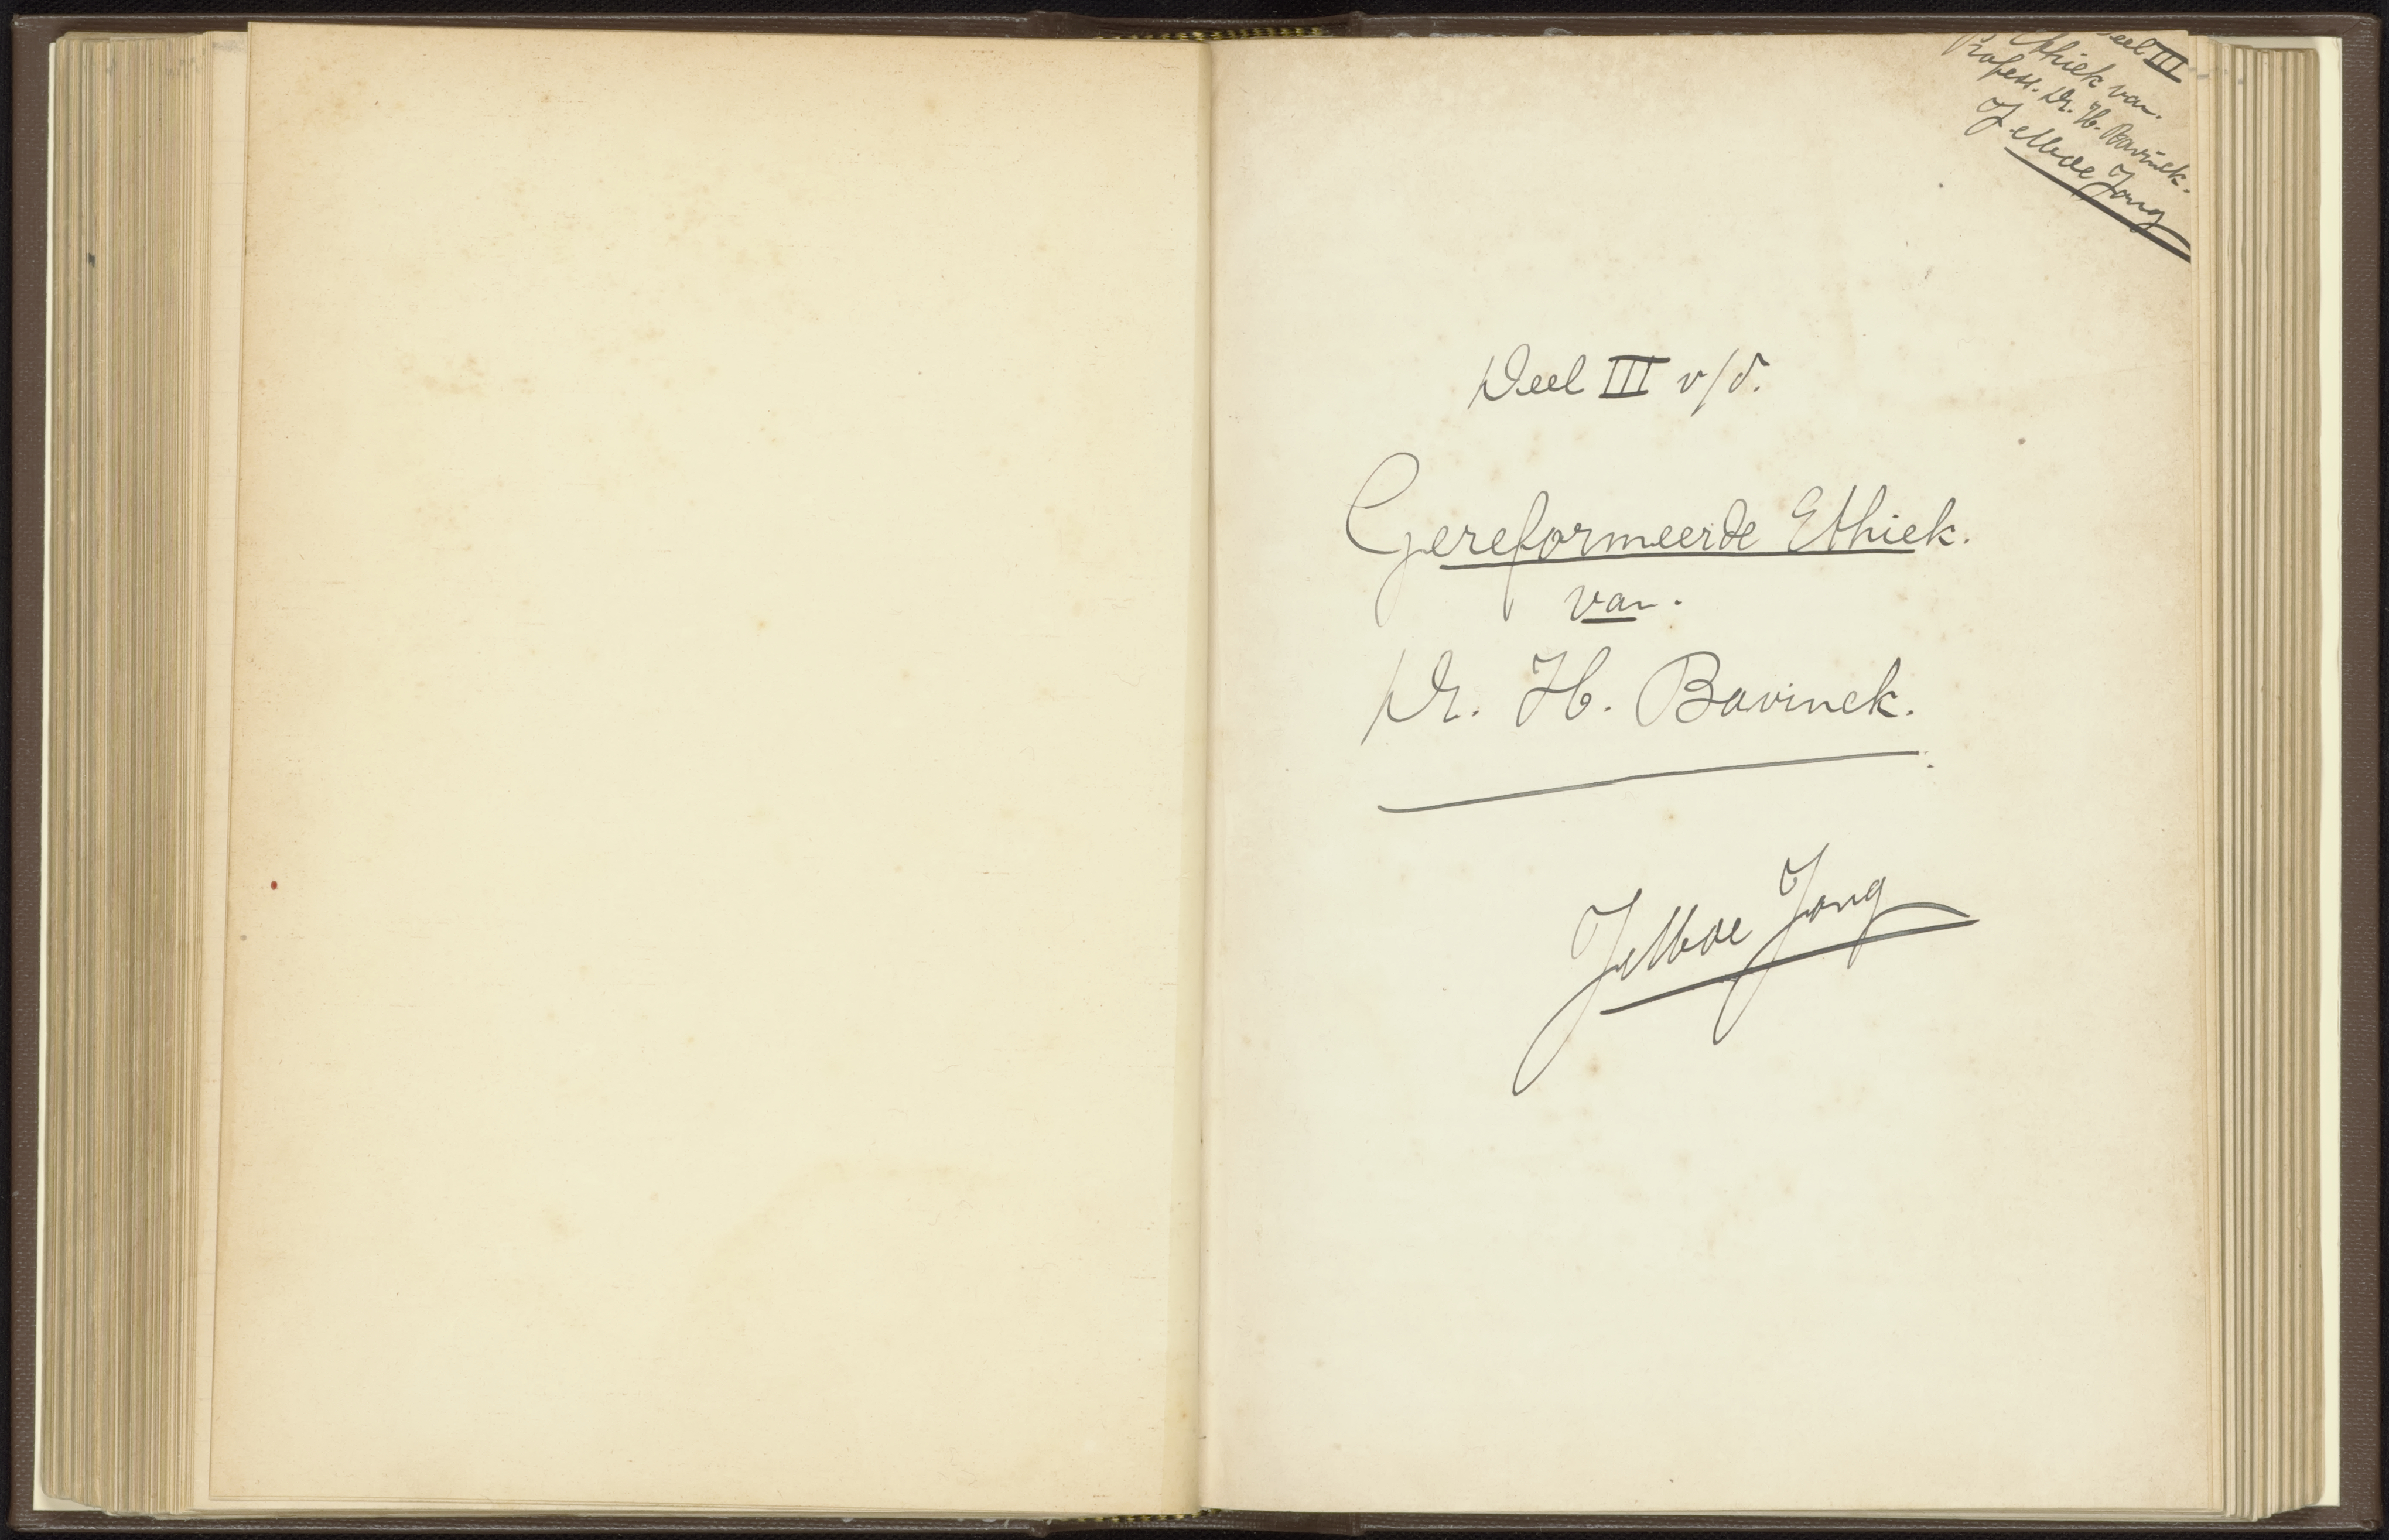 Deel III
Ethiek van.
Profess. Dr. H. Bavinck.
Jelle de Jong
Deel III v/d.
Gereformeerde Ethiek.
van.
Dr. H. Bavinck.
Jelle de Jong